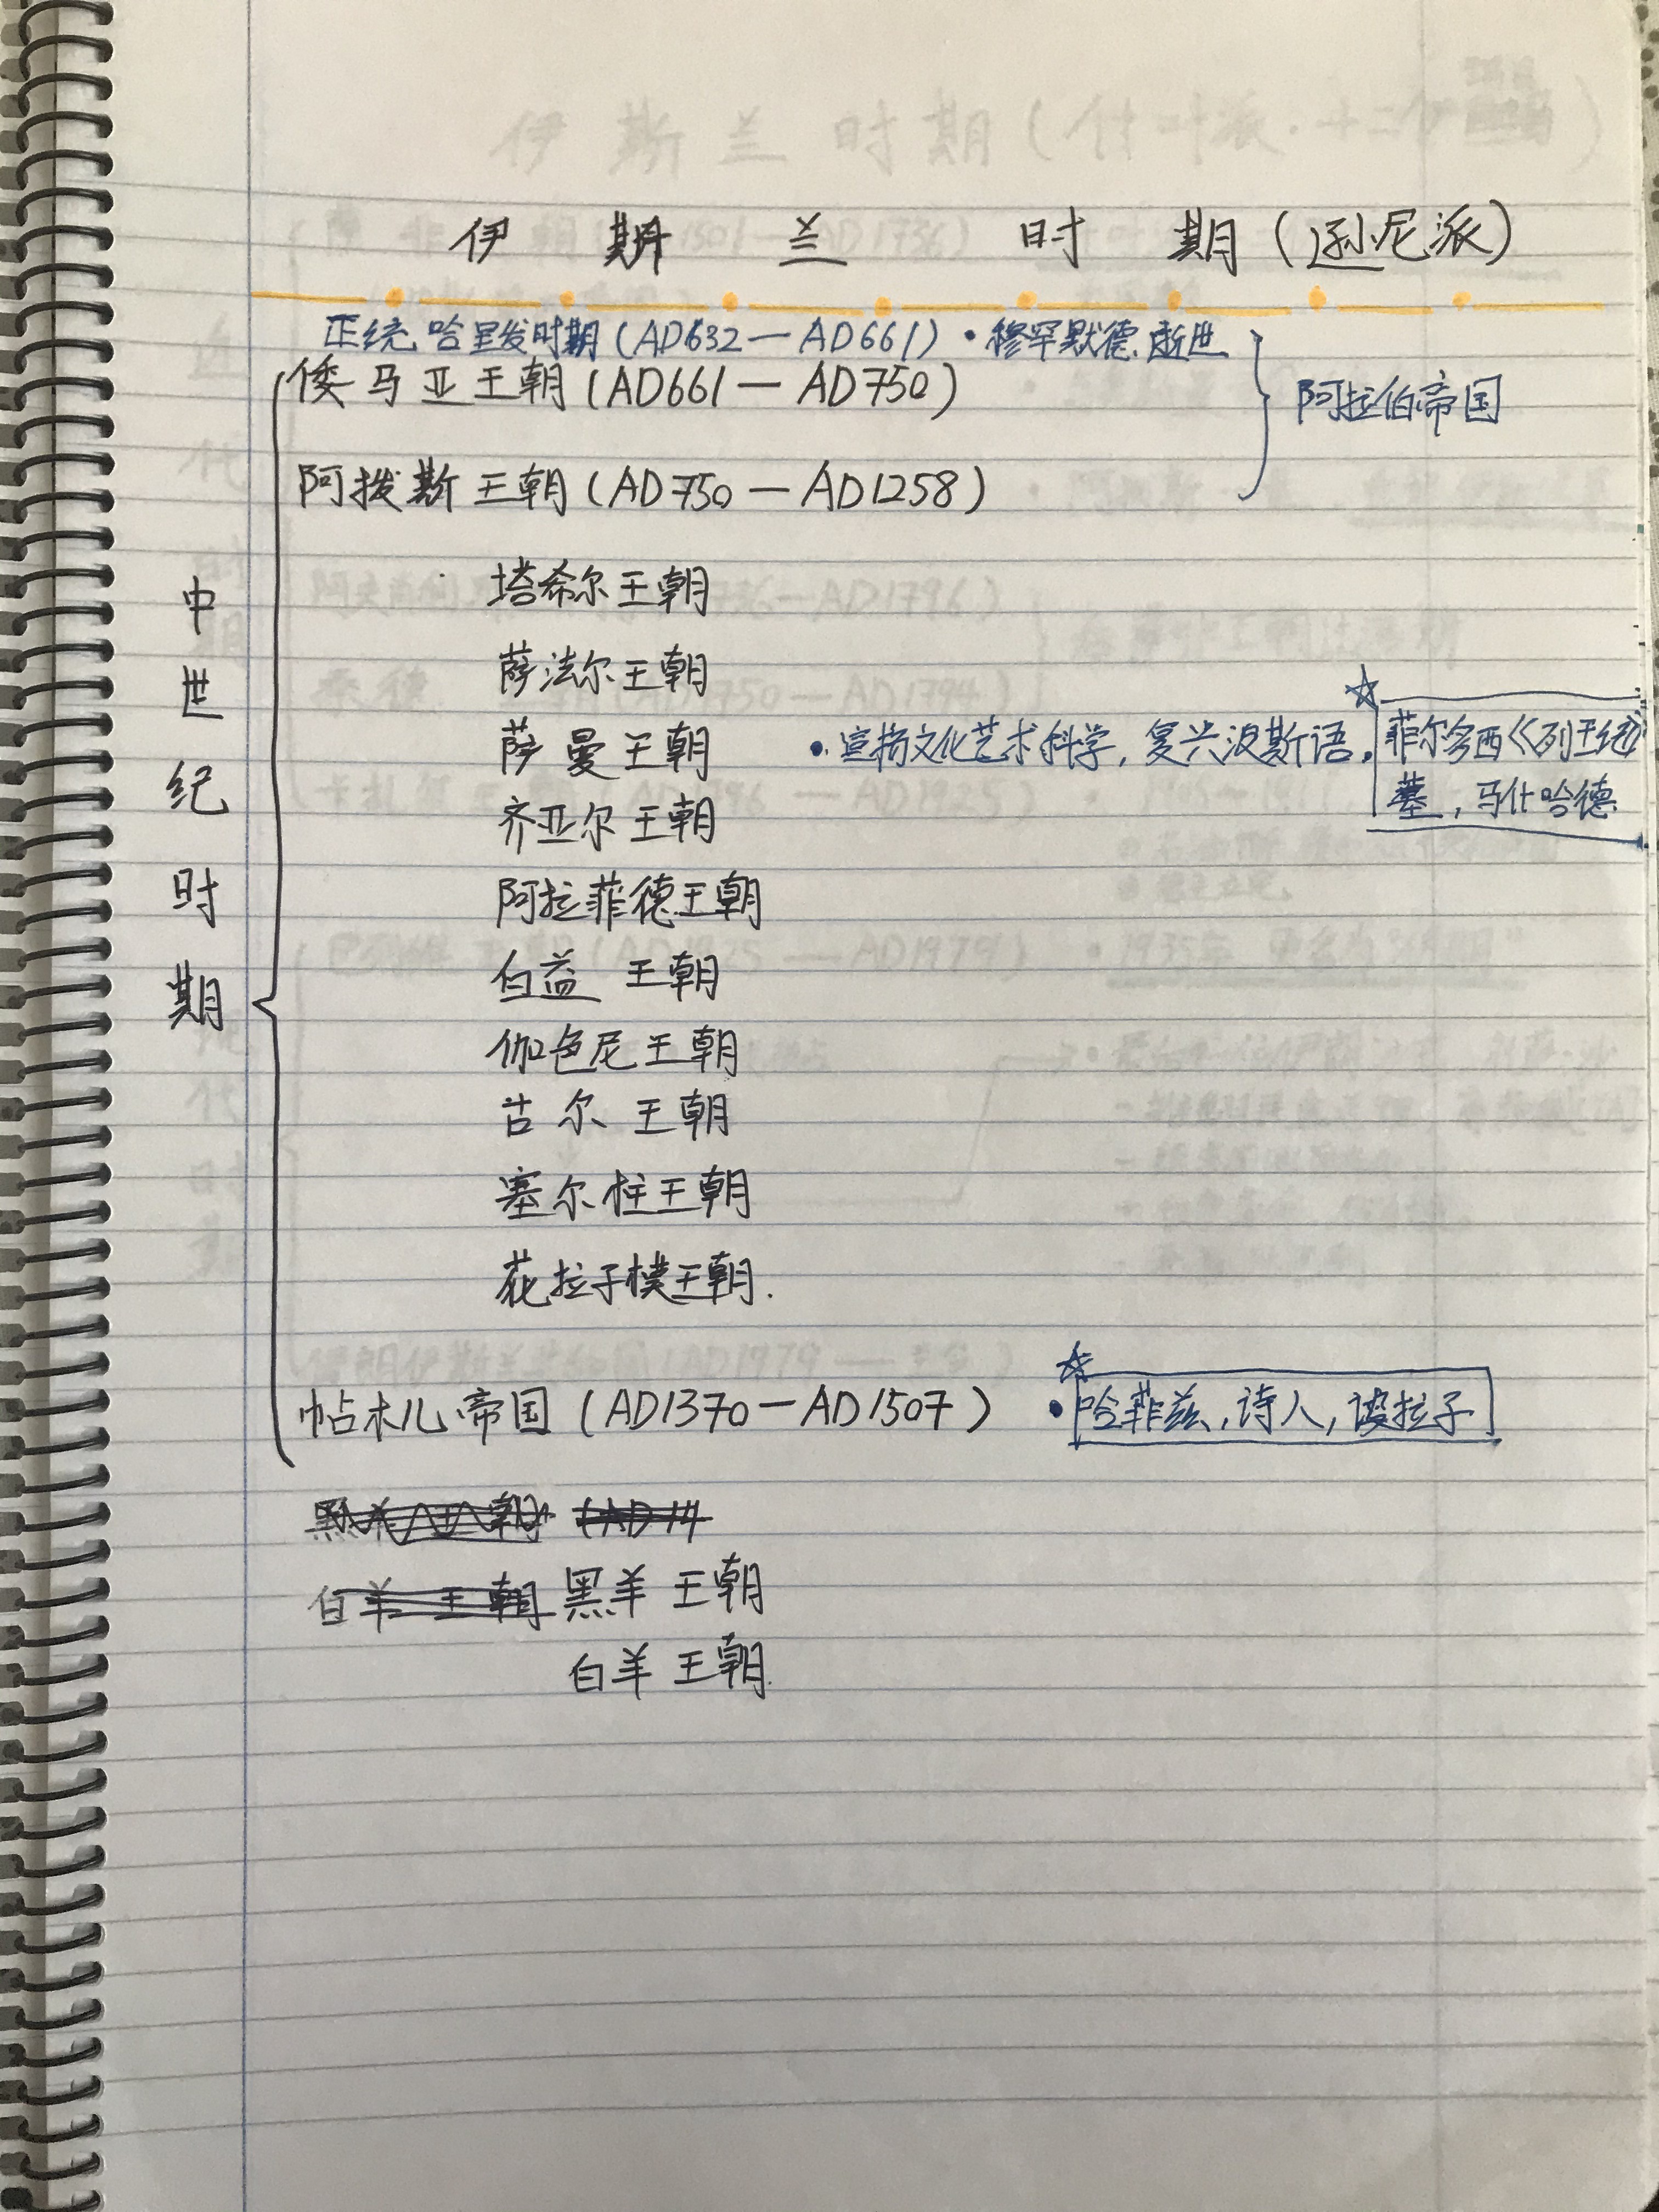 伊斯兰时期(逊尼派)
正统哈里发时期(AD632—AD661)·穆罕默德逝世
倭马亚王朝(AD661—AD750)
阿拉伯帝国
阿拨斯王朝(AD750—AD1258)
塔希尔王朝
萨法尔王朝
萨曼王朝 ·宣扬文化艺术科学,复兴波斯语.
☆菲尔多西《列王纪》
墓,马什哈德
齐亚尔王朝
阿拉菲德王朝
白益王朝
伽色尼王朝
古尔王朝
塞尔柱王朝
花拉子模王朝.
中世纪时期
帖木儿帝国(AD1370—AD1507) ·☆哈菲兹,诗人,设拉子
黑羊王朝(AD14
白羊王朝 黑羊王朝
白羊王朝.